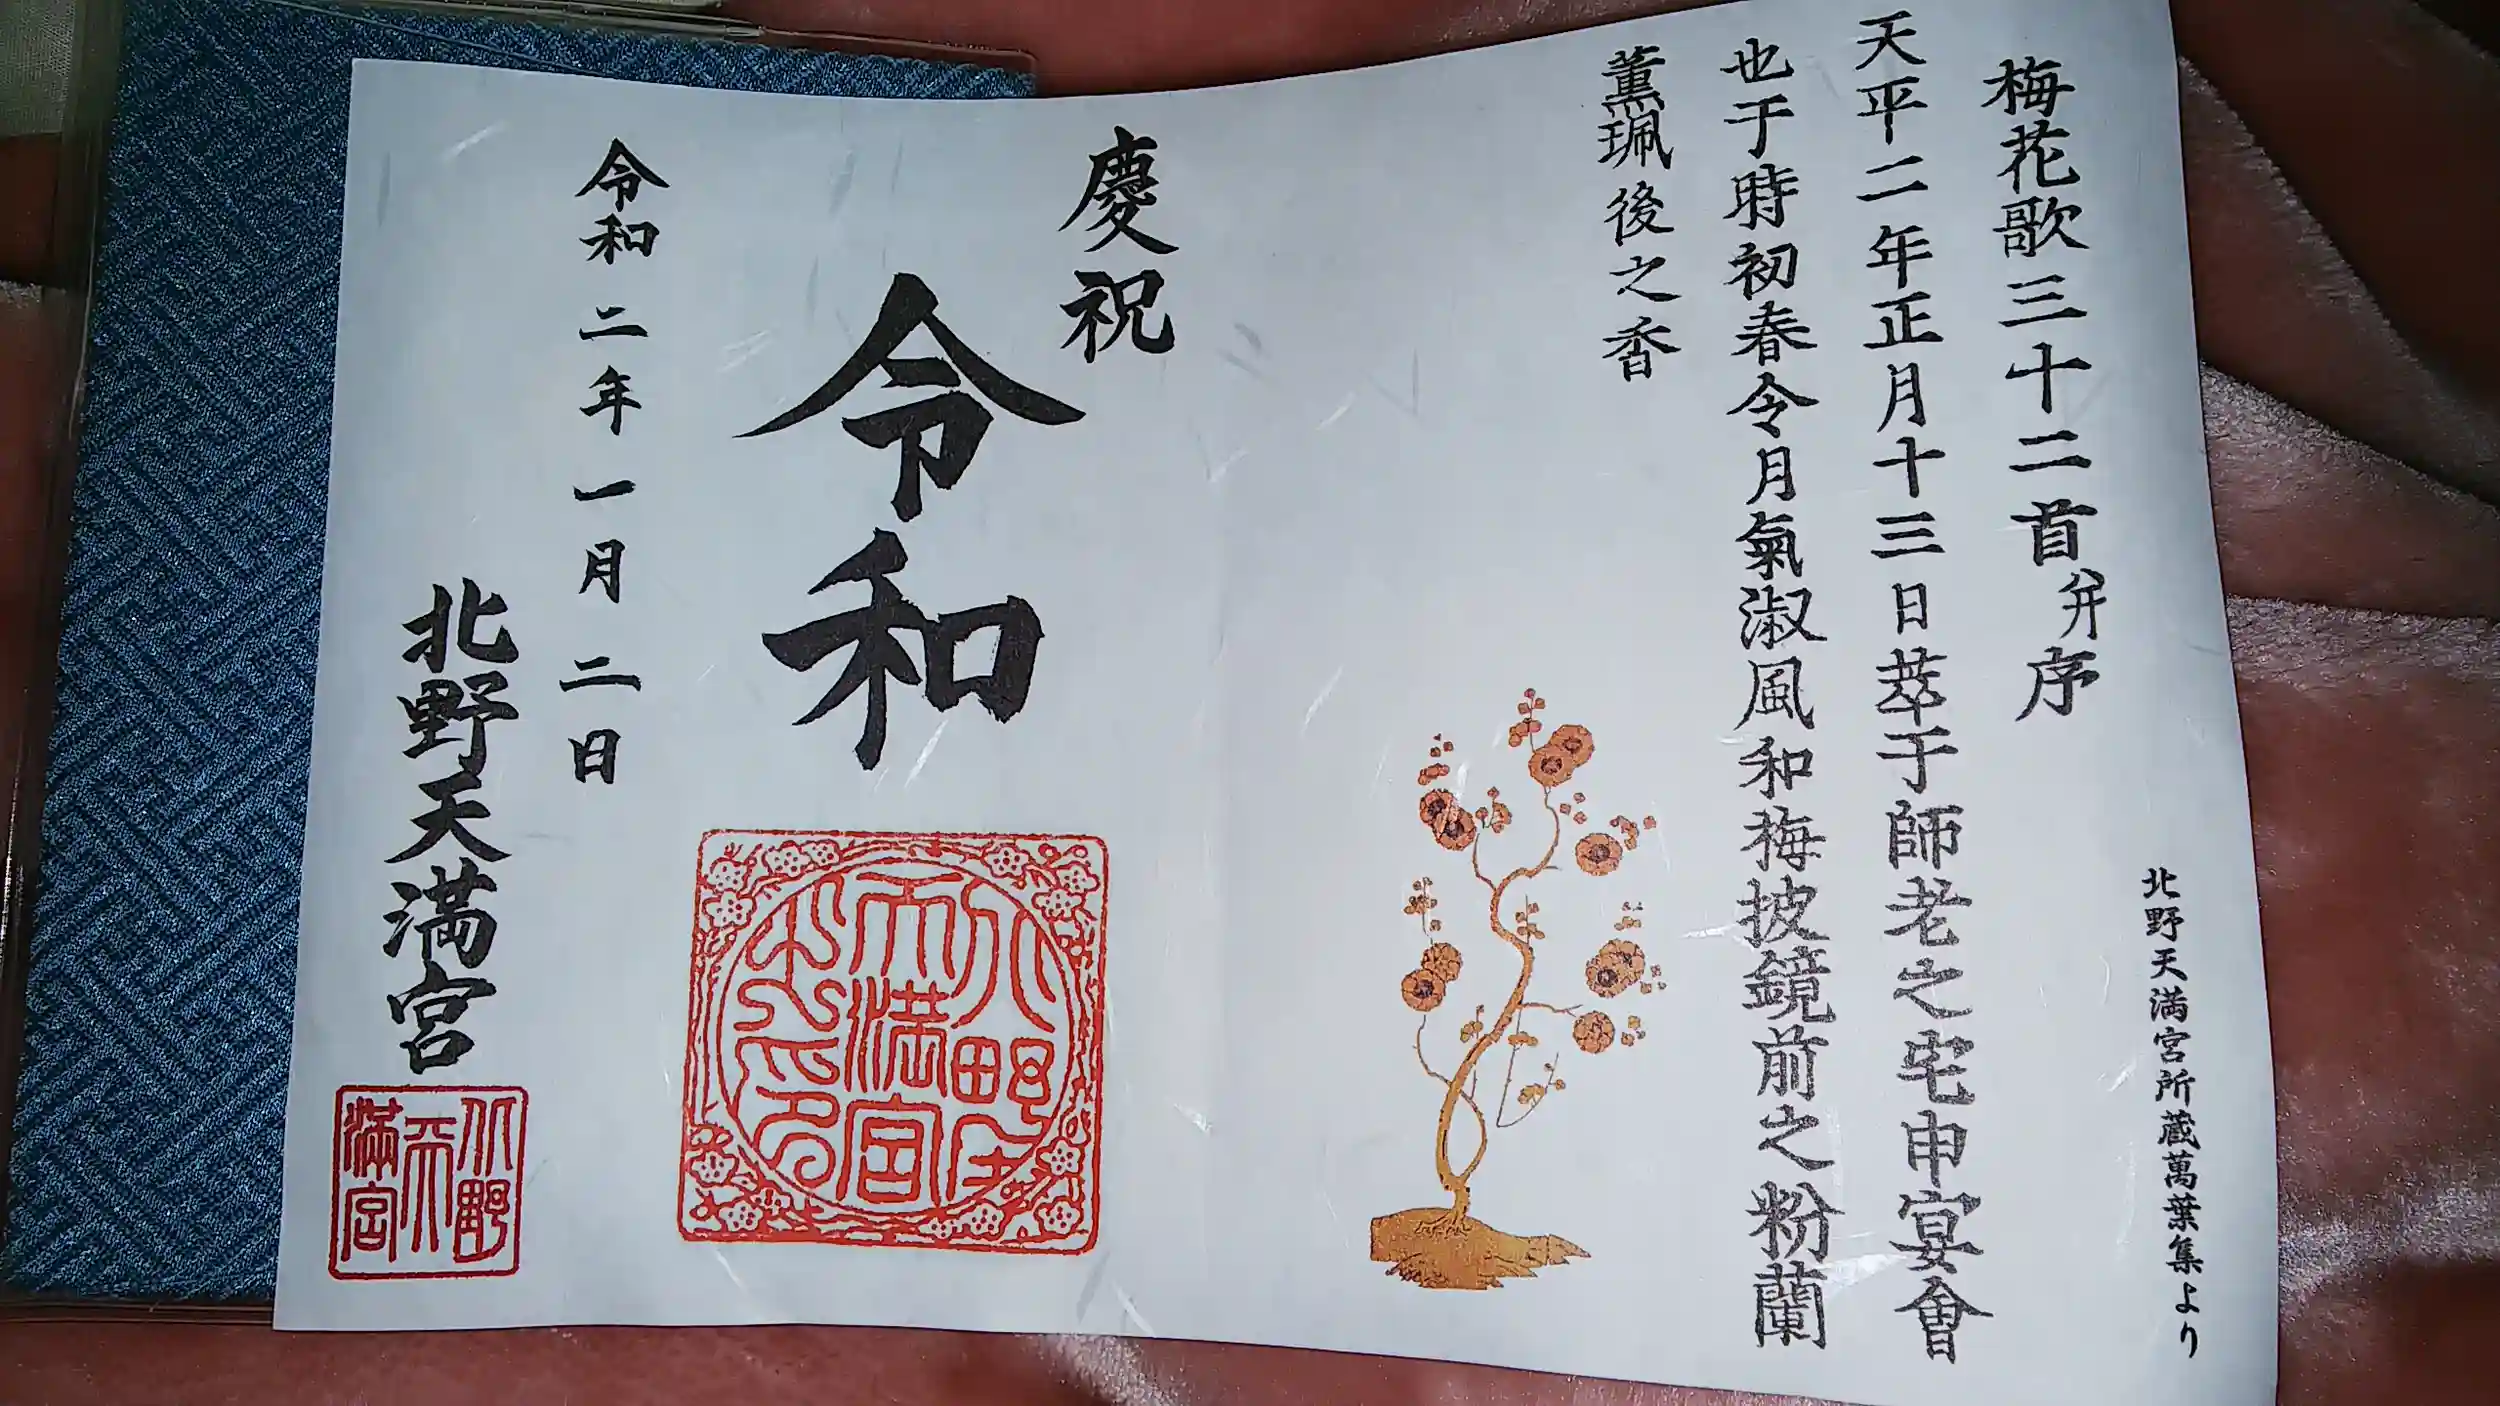 北野天満宮所蔵萬葉集より
梅花歌三十二首并序
天平二年正月十三日萃于師老之宅申宴會
也于時初春令月氣淑風和梅披鏡前之粉蘭
薫珮後之香
慶祝
令和
令和二年一月二日
北野天満宮
北野天満宮